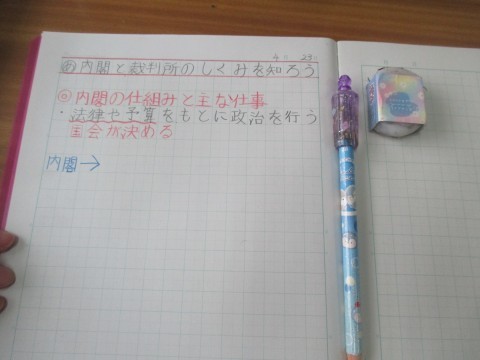 4 23
め 内閣と裁判所のしくみを知ろう
◎内閣の仕組みと主な仕事
・法律や予算をもとに政治を行う
国会が決める
内閣→